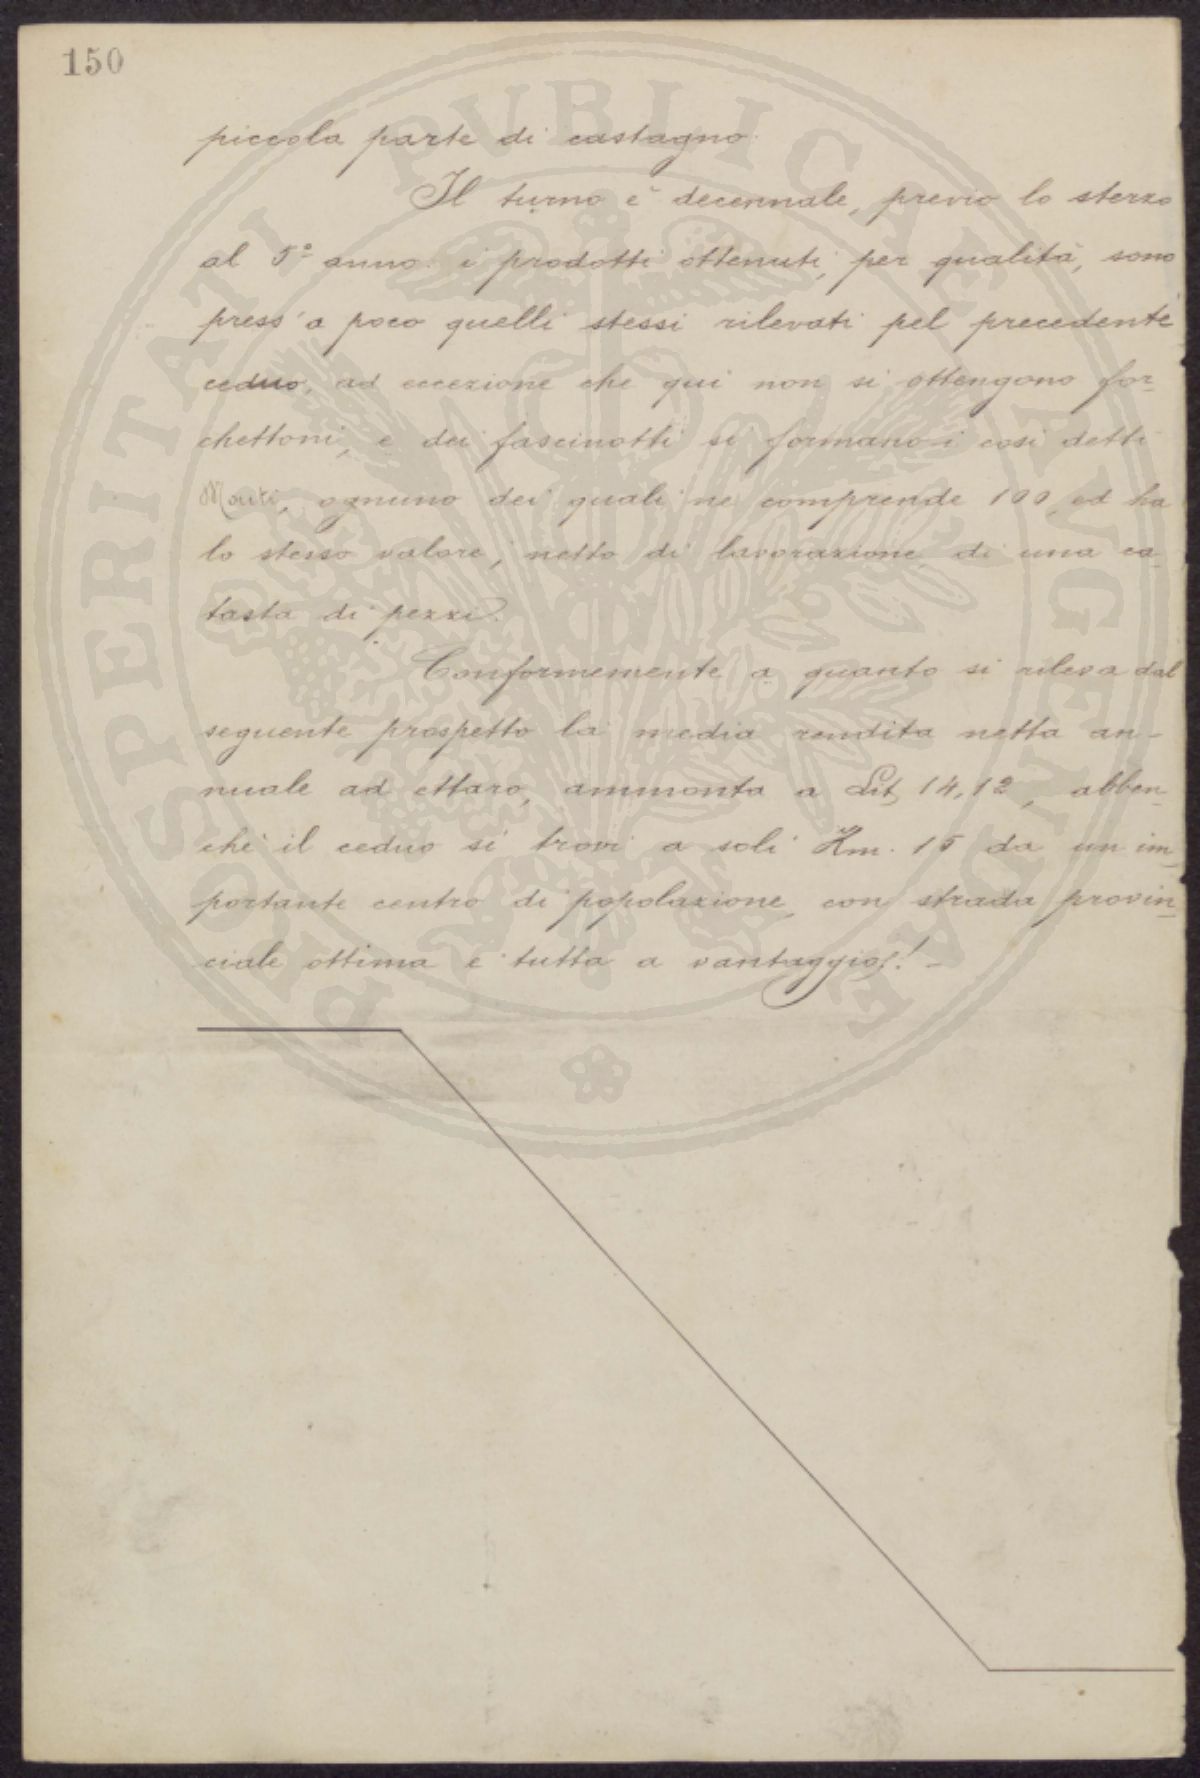 150
piccola parte di castagno.
Il turno è decennale, previo lo sterzo
al 5º anno: i prodotti ottenuti, per qualità, sono
press'a poco quelli stessi rilevati pel precedente
ceduo, ad eccezione che qui non si ottengono for=
chettoni, e dei fascinotti si formano i così detti
ognuno dei quali ne comprende 100, ed ha
lo stesso valore, netto di lavorazione, di una ca=
tasta di pezzi.
Conformemente a quanto si rileva dal
seguente prospetto la media rendita netta an-
nuale ad ettaro, ammonta a Lit 14,12, abben=
chè il ceduo si trovi a soli Km. 15 da un im=
portante centro di popolazione, con strada provin=
ciale ottima e tutta a vantaggio!-
PUBLICAE AUGENDAE PROSPERITATI